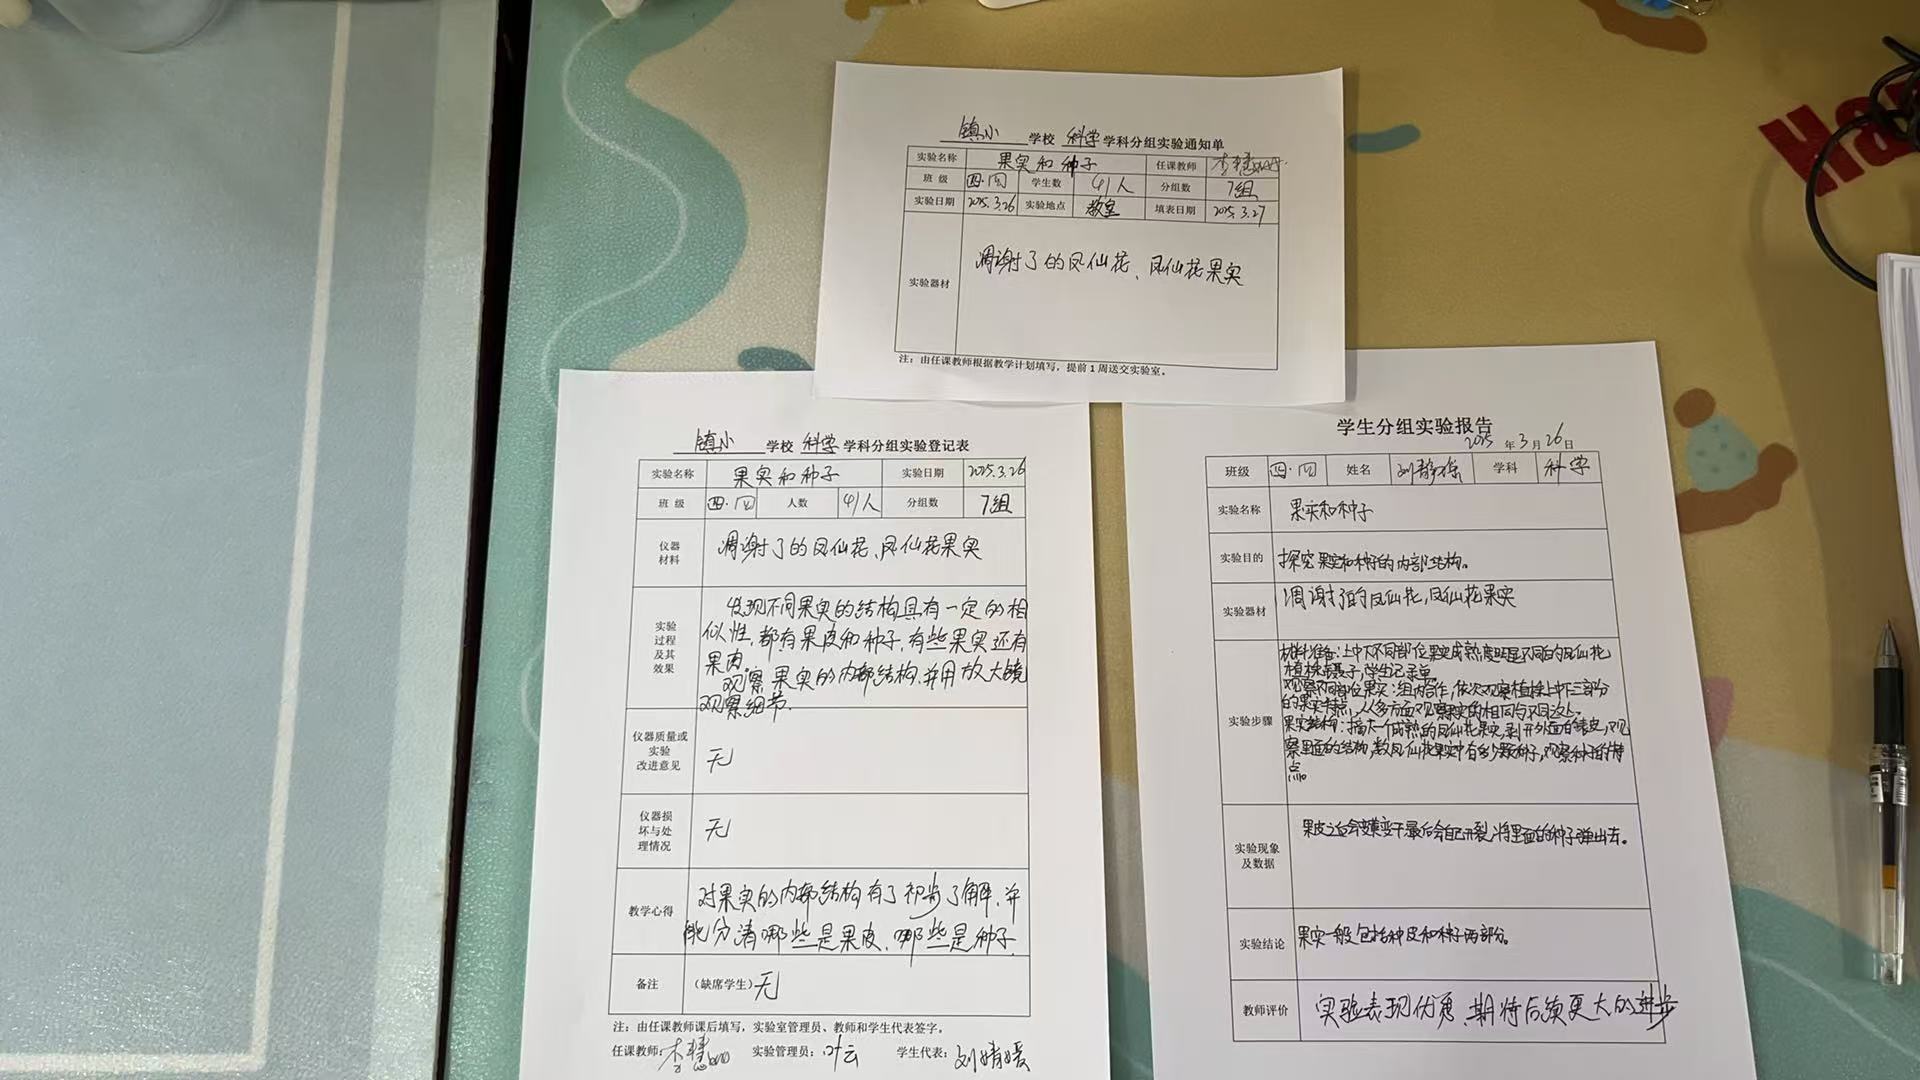 镇小 学校 科学 学科分组实验通知单
实验名称 果实和种子 任课教师
班 级 四·四 学生数 41人 分组数 7组
实验日期 2025.3.26 实验地点 教室 填表日期 2025.3.27
实验器材 凋谢了的凤仙花、凤仙花果实
注：由任课教师根据教学计划填写，提前1周送交实验室。
镇小 学校 科学 学科分组实验登记表
实验名称 果实和种子 实验日期 2025.3.26
班 级 四·四 人数 41人 分组数 7组
仪器
材料
凋谢了的凤仙花、凤仙花果实
实验
过程
及其
效果
发现不同果实的结构具有一定的相
似性，都有果皮和种子，有些果实还有
果肉。
观察果实的内部结构，并用放大镜
观察细节.
仪器质量或
实验
改进意见
无
仪器损
坏与处
理情况
无
教学心得
对果实的内部结构有了初步了解，并
能分清哪些是果皮、哪些是种子.
备注 （缺席学生） 无
注：由任课教师课后填写，实验室管理员、教师和学生代表签字。
任课教师： 实验管理员：叶云 学生代表：刘
学生分组实验报告
2025 年 3 月 26 日
班级 四·四 姓名 刘 学科 科学
实验名称 果实和种子
实验目的 探究果实和种子的内部结构。
实验器材 凋谢了的凤仙花，凤仙花果实
实验步骤
材料准备：上中下不同部位果实成熟度明显不同的凤仙花
植株，镊子，学生记录单
观察不同部位果实：组内合作，依次观察植株上中下三部分
的果实特点，从多方面观察果实的相同与不同之处。
果实结构：摘一个成熟的凤仙花果实，剥开外面的表皮，观
察里面的结构，数凤仙花果实中有多少颗种子，观察种子的特
点。
实验现象
及数据
果皮之后会变干最后会自己开裂，将里面的种子弹出去。
实验结论 果实一般包括种皮和种子两部分。
教师评价 实验表现优秀，期待后续更大的进步